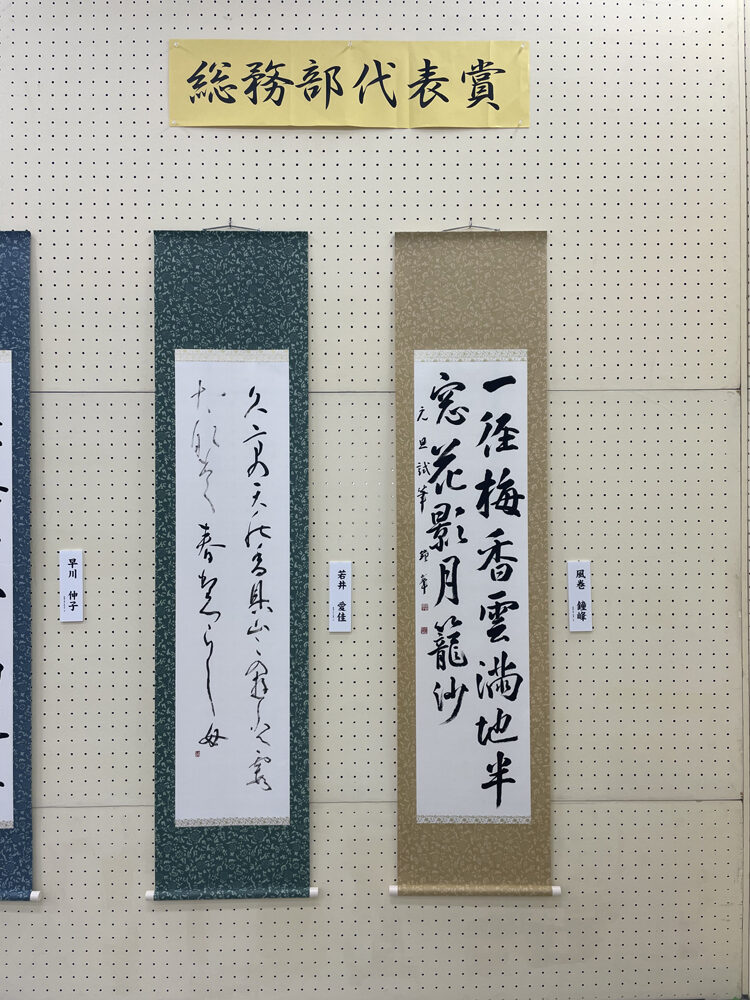 総務部代表賞
一径梅香雲満地半
窓花影月籠沙
元旦試筆
風巻 鐘峰
久方の天能香具山この 霞
春 らし母
若井 愛佳
早川 仲子